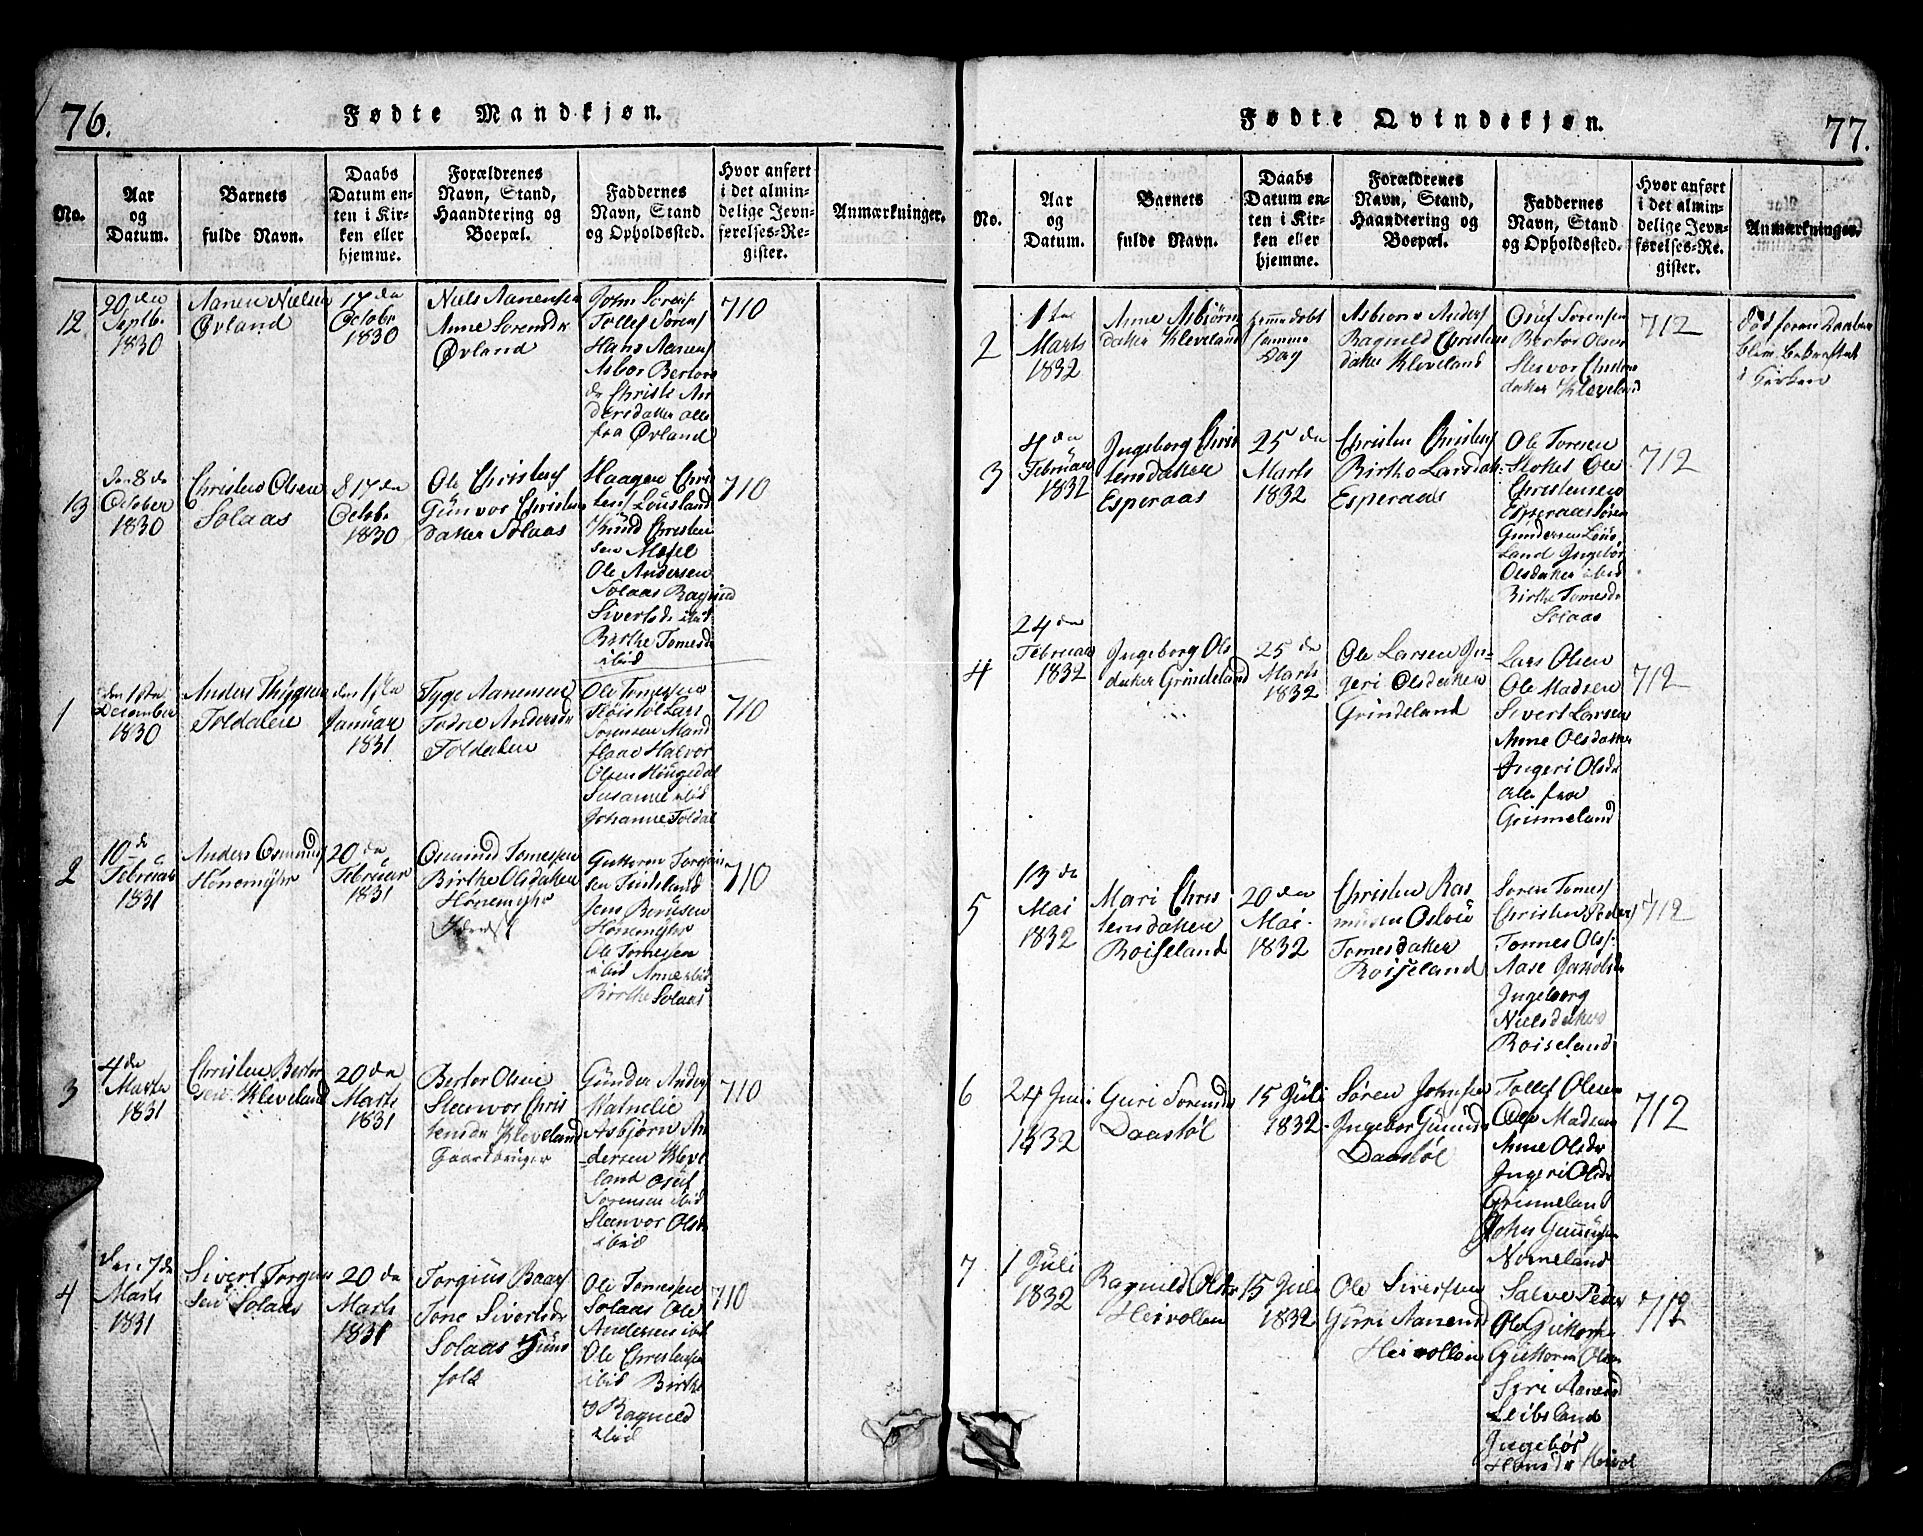 76.
Fødte Mandkjøn.
No.
Aar
og
Datum.
Barnets
fulde Navn.
Daabs
Datum en-
ten i Kir-
ken eller
hjemme.
Forældrenes
Navn, Stand,
Haandtering og
Boepæl.
Faddernes
Navn, Stand
og Opholdssted.
Hvor anført
i det almin-
delige Jevn-
førelses-Re-
gister.
Anmærkninger.
12
20 de
Septb.
1830
Aanen Nielsen
Øvland
17 de
Octobr
1830
Niels Aanensen
Anne Sorensdr
Øvland
John Sorens
Tollef Sorens
Hans Aanens
Asbor Bertors
dr Christi An
dersdatter alle
fra Øvland
710
13
den 8 de
October
1830
Christen Olsen
Solaas
17 de
Octob.
1830
Ole Christens
Gunvor Christens
datter Solaas
Haagen Chri
stens Lousland
Knud Christen
sen Mosel
Ole Andersen
Solaas Ragnild
Sivertsdr ibid
Birthe Tomesdr
ibid
710
1
den 1ste
December
1830
Anders Thygsen
Toldalen
den 1ste
Januar
1831
Tyge Aanensen
Todne Andersdr
Toldalen
Ole Tomessen
Støistøl Lars
Sorensen Mand
flaae Halvor
Olsen Hougedal
Susanne ibid
Johanne Toldal
710
2
10 de
Februar
1831
Anders Osmunds
Hönemyhr
20 de
Februar
1831
Osmund Tomessen
Birthe Olsdatter
Hönemyhr
Guttorm Torgius
sen Fuidsland
Jens Berüsen
Hönemyhr
Ole Tomesen
ibid Anne ibid
Birthe Solaas
710
3
4 de
Marts
1831
Christen Bertor
sen Kleveland
20 de
Marts
1831
Bertor Olsen
Steenvor Chris
tensdr Kleveland
Gaardbruger
Gunder Anders
Hatnelie
Asbjørn An
dersen Kleve
land Osuf
Sorensen ibid
Steenvor Olsdr
ibid
710
4
den 7 de
Marts
1831
Sivert Torgius
sen Solaas
20 de
Marts
1831
Torgius Baars
Tone Sivertsdr
Solaas Huus
folk
Ole Tomessen
Solaas Ole
Andersen ibid
Ole Christensen
ibid Birthe
og Ragnild
ibid
710
77.
Fødte Qvindekjøn.
No.
Aar
og
Datum.
Barnets
fulde Navn.
Daabs
Datum en-
ten i Kir-
ken eller
hjemme.
Forældrenes
Navn, Stand,
Haandtering og
Boepæl.
Faddernes
Navn, Stand
og Opholdssted.
Hvor anført
i det almin-
delige Jevn-
førelses-Re-
gister.
Anmærkninger.
2
1ste
Marts
1832
Anne Asbjörns
datter Kleveland
hjemmedöbt
samme
Dag
Asbiorn Anders
Ragnild Christens
datter Kleveland
Osuf Sorensen
Bertor Olsen
Stenvor Christens
datter Kleveland
712
Död foran Daaben
blev bekræftet
i Kirken
3
4 de
Februar
1832
Ingeborg Chris
tensdatter
Esperaas
25 de
Marts
1832
Christen Christens
Birthe Larsdat:
Esperaas
Ole Toresen
Stokes Ole
Christensen
Esperaas Sören
Gundersen Lous
land Ingebor
Olsdatter ibid
Birthe Tomesdr
Solaas
712
4
24 de
Februar
1832
Ingeborg Ols
datter Grindeland
25 de
Marts
1832
Ole Larsen In-
geri Olsdatter
Grindeland
Lars Olsen
Ole Madsen
Sivert Larsen
Anne Olsdatter
Ingeri Olsdr
alle fra
Grinneland
712
5
13 de
Mai
1832
Mari Chris
tensdatter
Roiseland
20 de
Mai
1832
Christen Ras
musen Oslou
Tomesdatter
Roiseland
Soren Tomes
Christen Peders
Tonnes Ols:
Aase
Ingeborg
Nielsdatter
Roiseland
712
6
24 Juni
1832
Guri Sorensdr
Daastöl
15 Juli
1832
Søren Johnsen
Ingebor Gunds
Daastöl
Tollef Olsen
Ole Madsen
Anne Olsdr
Ingeri Olsdr
Grinneland
John Gunnufsen
Nomeland
712
7
1 Juli
1832
Ragnild Olsdr
Heivollen
15 Juli
1832
Ole Sivertsen
Guri Aanensd
Heivollen
Salve Peder
Ole Guttorms
Guttorm Olsen
Siri Aanensd
Leibsland
Ingebör
Hansdr Heivol
712